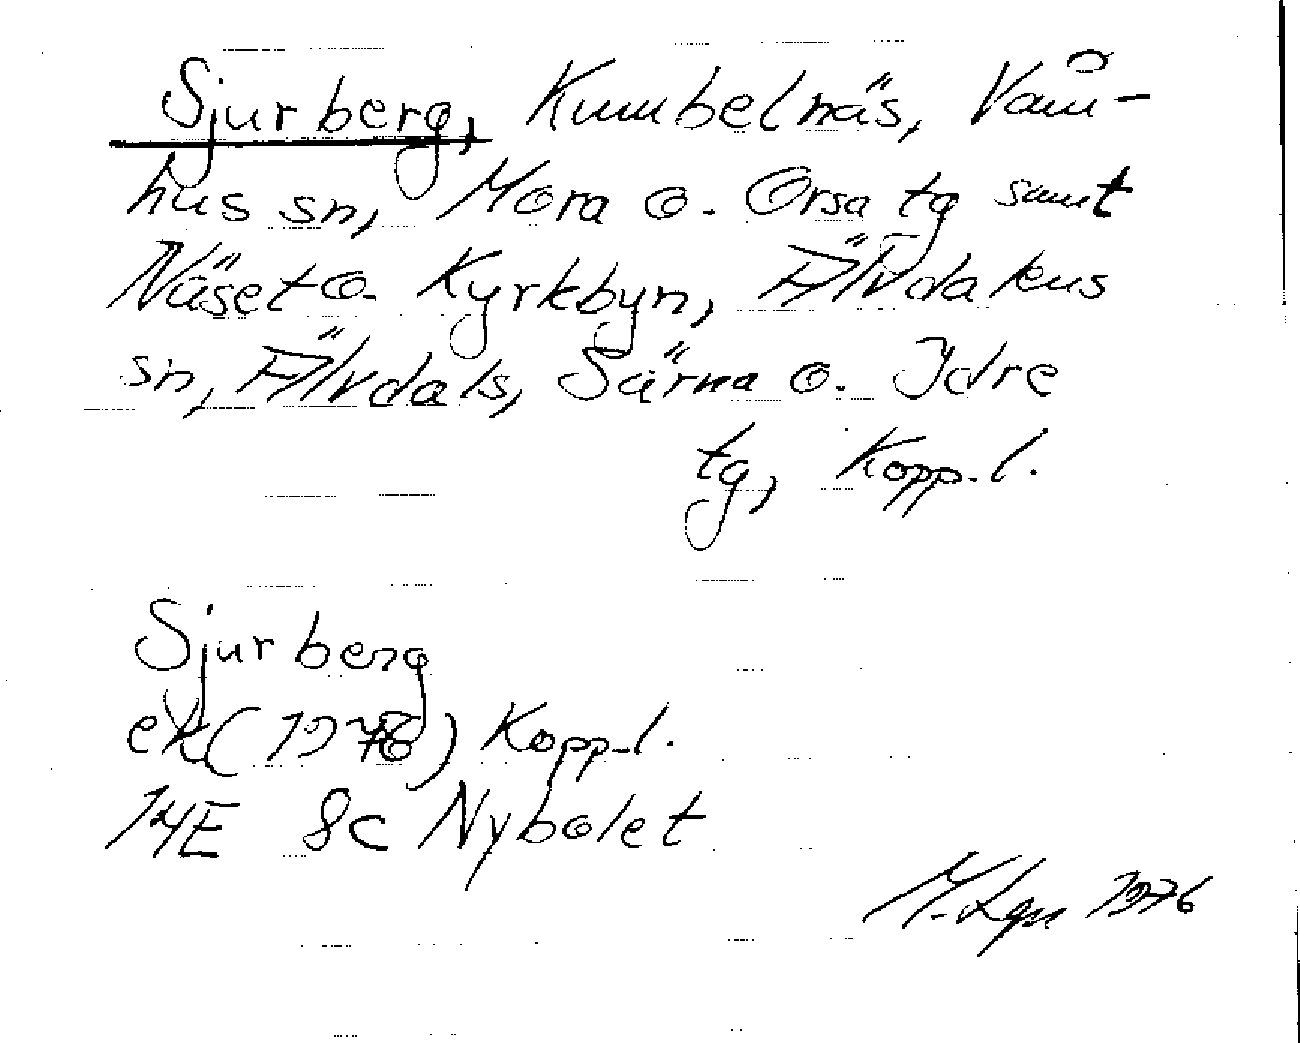 Sjurberg, Kumbelnäs, Våm-
hus sn, Mora o. Orsa tg samt
Näset o. Kyrkbyn, Älvdalens
sn, Älvdals, Särna o. Idre
tg, Kopp. l.
Sjurberg
ek (1976) Kopp. l.
14E 8c Nybolet
1976